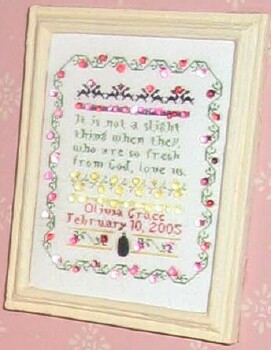 It is not a slight
thing when they,
who are so fresh
from God, love us.
Olivia Grace
February 10, 2005